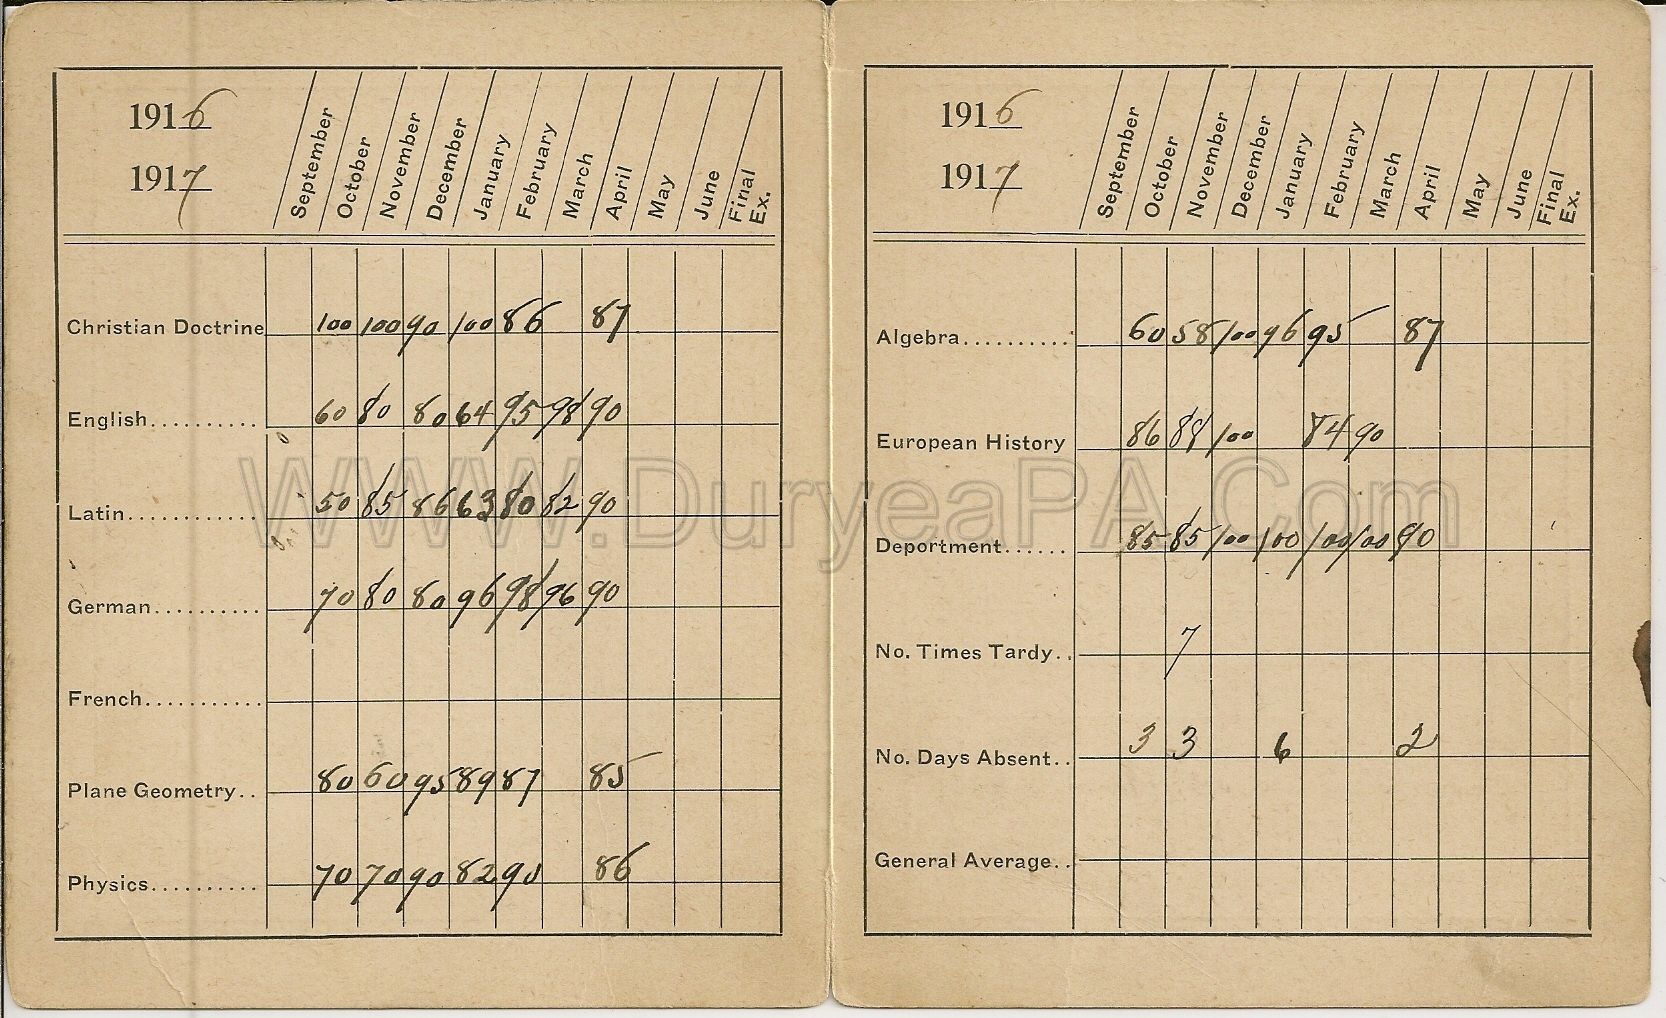 1916
1917
September October November December January February March April May June Final Ex.
Christian Doctrine 100 100 90 100 86 87
English.......... 60 80 80 64 95 98 90
Latin............ 50 85 86 63 80 82 90
German.......... 70 80 80 96 98 96 90
French...........
Plane Geometry.. 80 60 95 89 87 85
Physics.......... 70 70 90 82 90 86
1916
1917
September October November December January February March April May June Final Ex.
Algebra.......... 60 58 100 96 95 87
European History 86 88 100 84 90
Deportment...... 85 85 100 100 100 100 90
No. Times Tardy.. 7
No. Days Absent.. 3 3 6 2
General Average..
WWW.DuryeaPA.Com